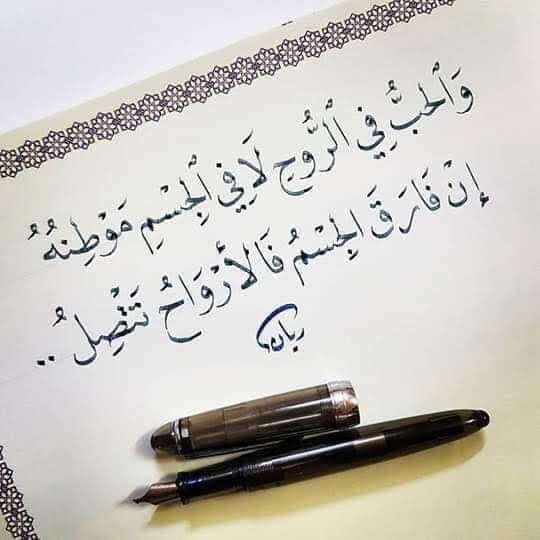 وَٱلْحُبُّ فِي ٱلرُّوحِ لَا فِي ٱلْجِسْمِ مَوْطِنُهُ
إِنْ فَارَقَ الْجِسْمُ فَالأَرْوَاحُ تَتَّصِلُ..
ريان